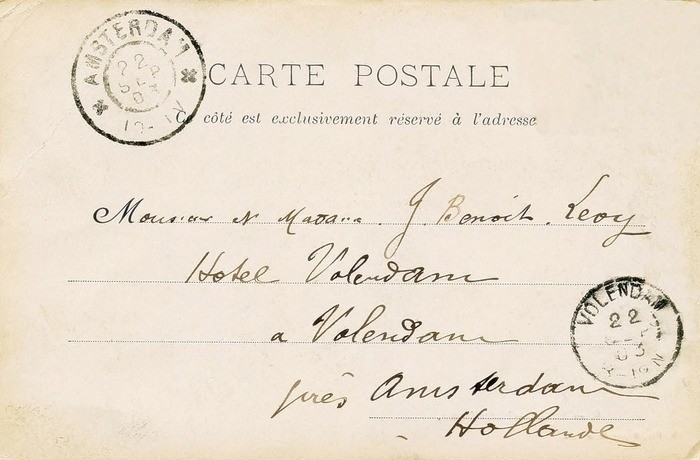 AMSTERDAM
CARTE POSTALE
Ce côté est exclusivement réservé à l'adresse
Monsieur et Madame J. Benoit. Levy
Hotel Volendam
a Volendam
près Amsterdam
Hollande
VOLENDAM
22